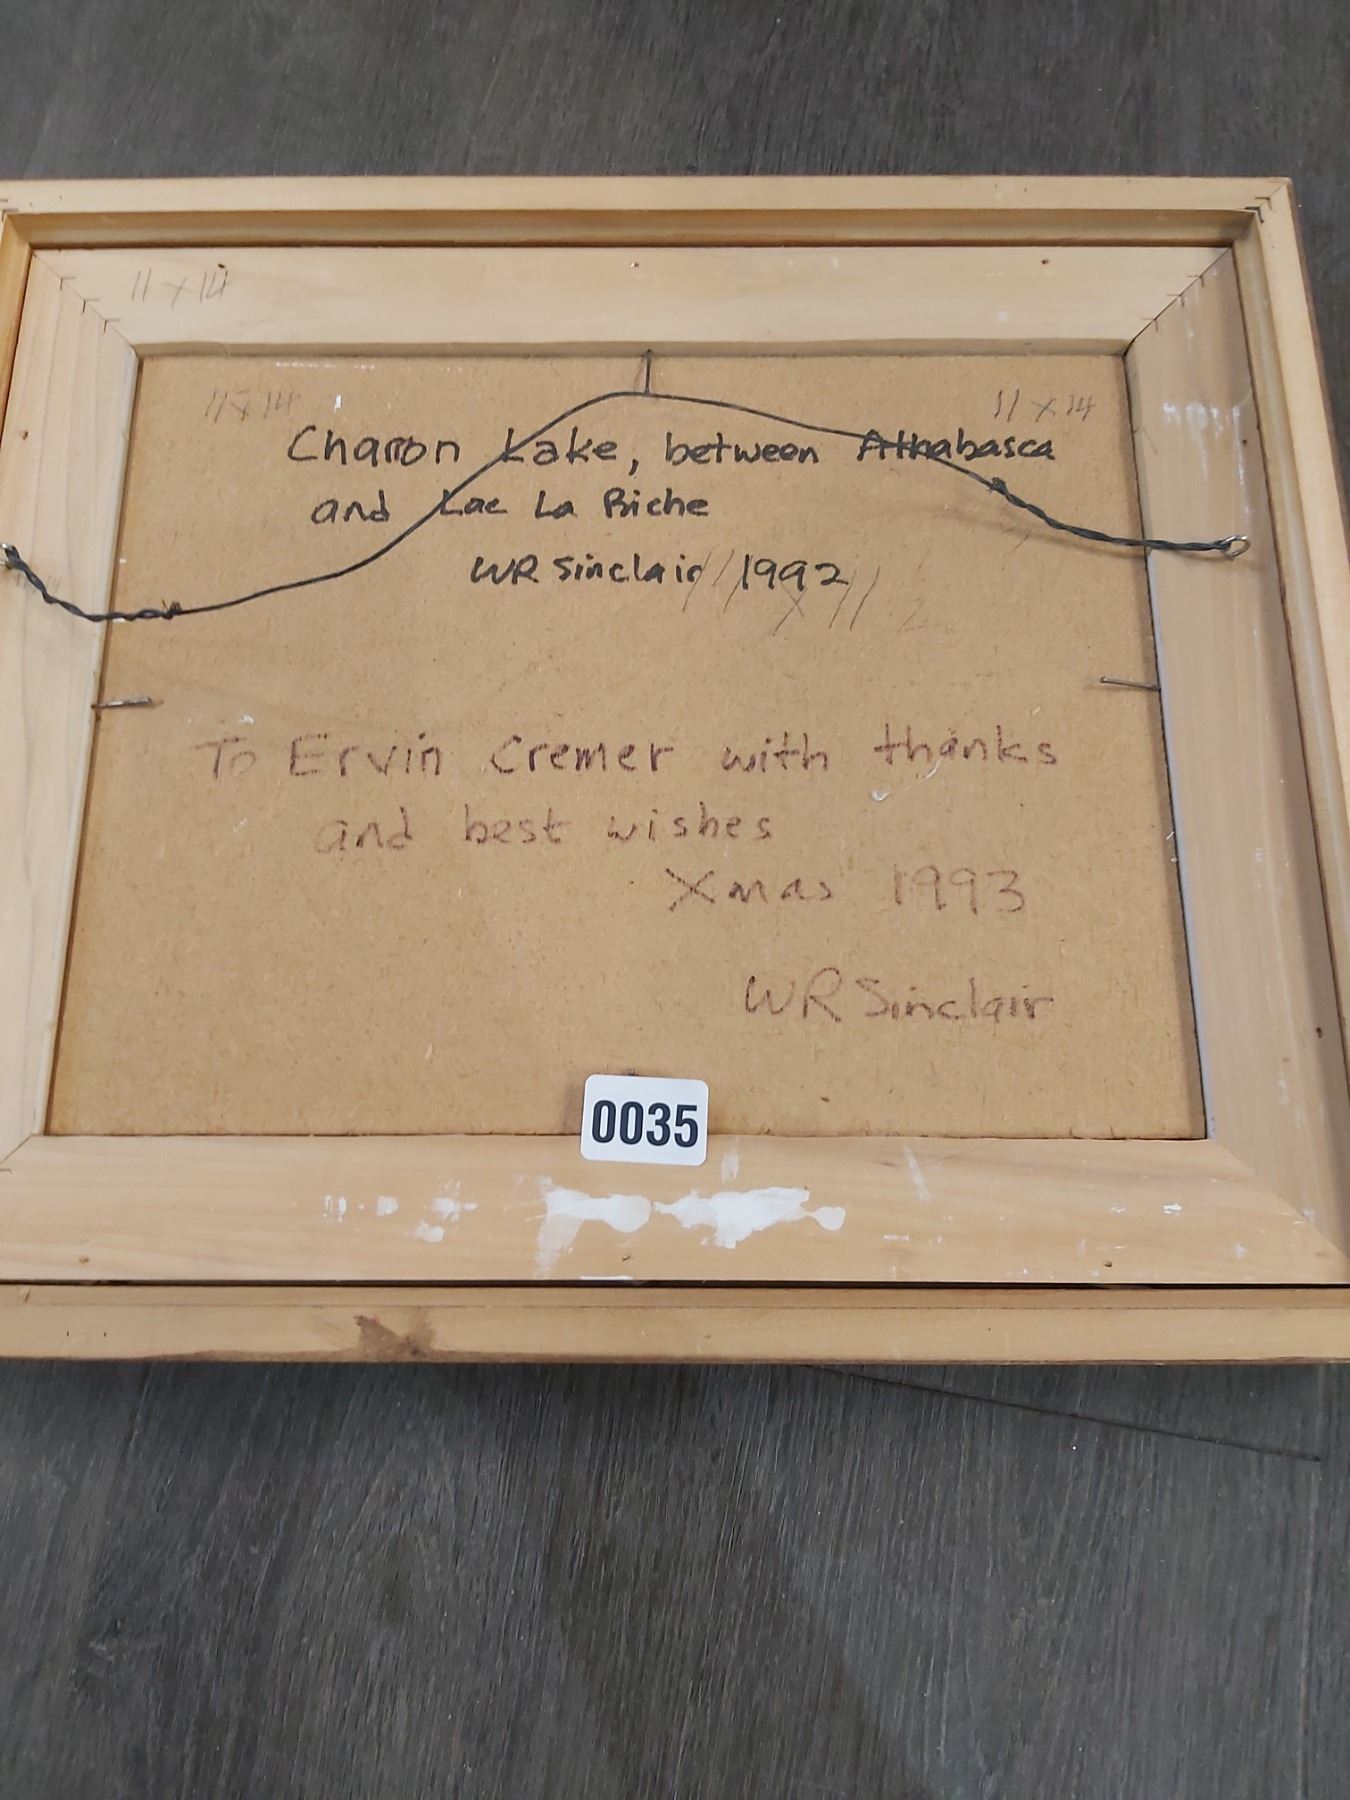 11 x 14
11 x 14
11 x 14
Charron Lake, between Athabasca
and Lac La Biche
WR Sinclair 1992
To Ervin Cremer with thanks
and best wishes
Xmas 1993
WR Sinclair
0035